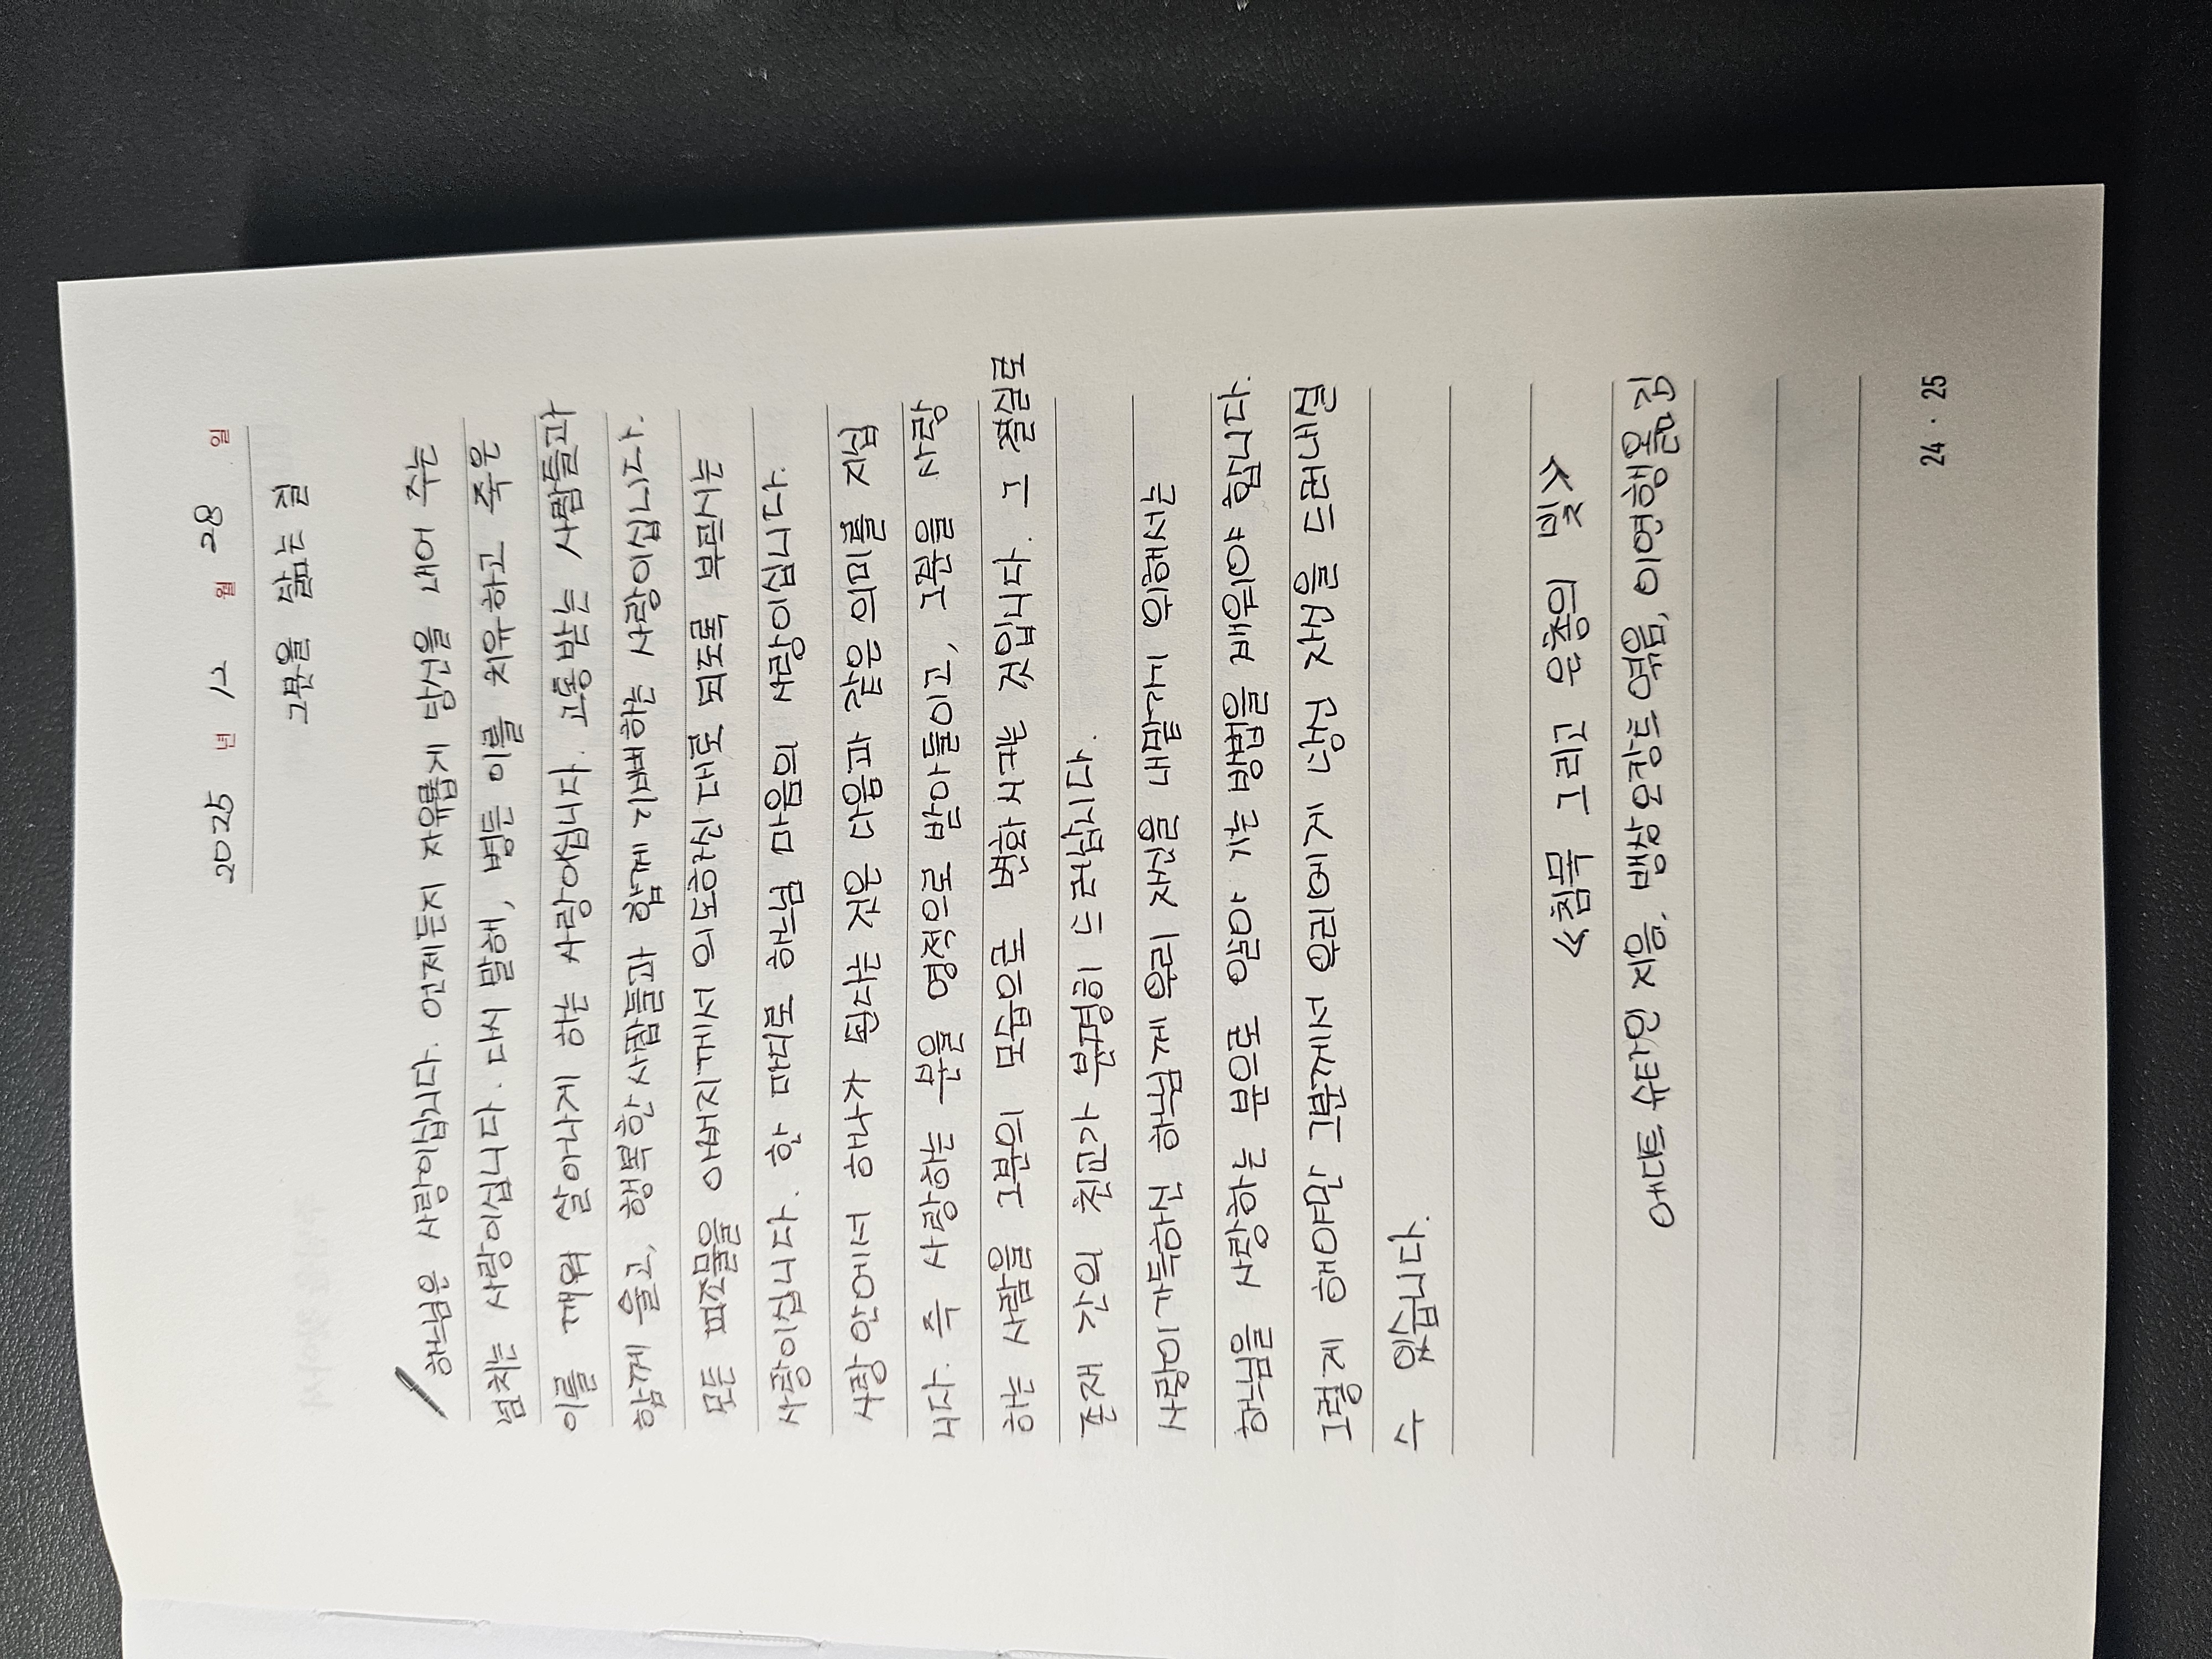 2025 년 12 월 28 일
그분을 닮는 길
하느님은 사랑이십니다. 언제든지 자유롭게 당신을 내어 주는
넘치는 사랑이십니다. 다시 말해, 병든 이를 치유하고 죽은
이를 깨워 살아나게 하는 사랑이십니다. 고통받는 사람들과
함께 울고, 행복한 사람들과 함께 기뻐하는 사랑이십니다.
모든 피조물을 아버지께서 의도하신 대로 되도록 부르시는
사랑이십니다. 한 마디로 하느님 마음의 사랑이십니다.
사랑 안에서 하나가 된다는 것은 다음과 같은 의미를 지닙
니다. 즉 사랑하는 분을 영적으로 받아들이고, 그분을 사랑
하는 사람을 그분의 모습으로 변화시키는 것입니다. 그 결실로
존재 간의 친교가 분명히 드러납니다.
사랑이 가득하신 하느님께 우리 자신을 내맡기기 위해서는
하느님을 사랑하는 분으로 알아 가는 방법을 배워야 합니다.
그렇게 해야만 그분께서 우리에게 당신 자신을 드러내실
수 있습니다.
《침묵 그리고 은총의 빛》
에디트 슈타인 지음, 뱅상 오캉트 엮음, 이연행 옮김
24 · 25